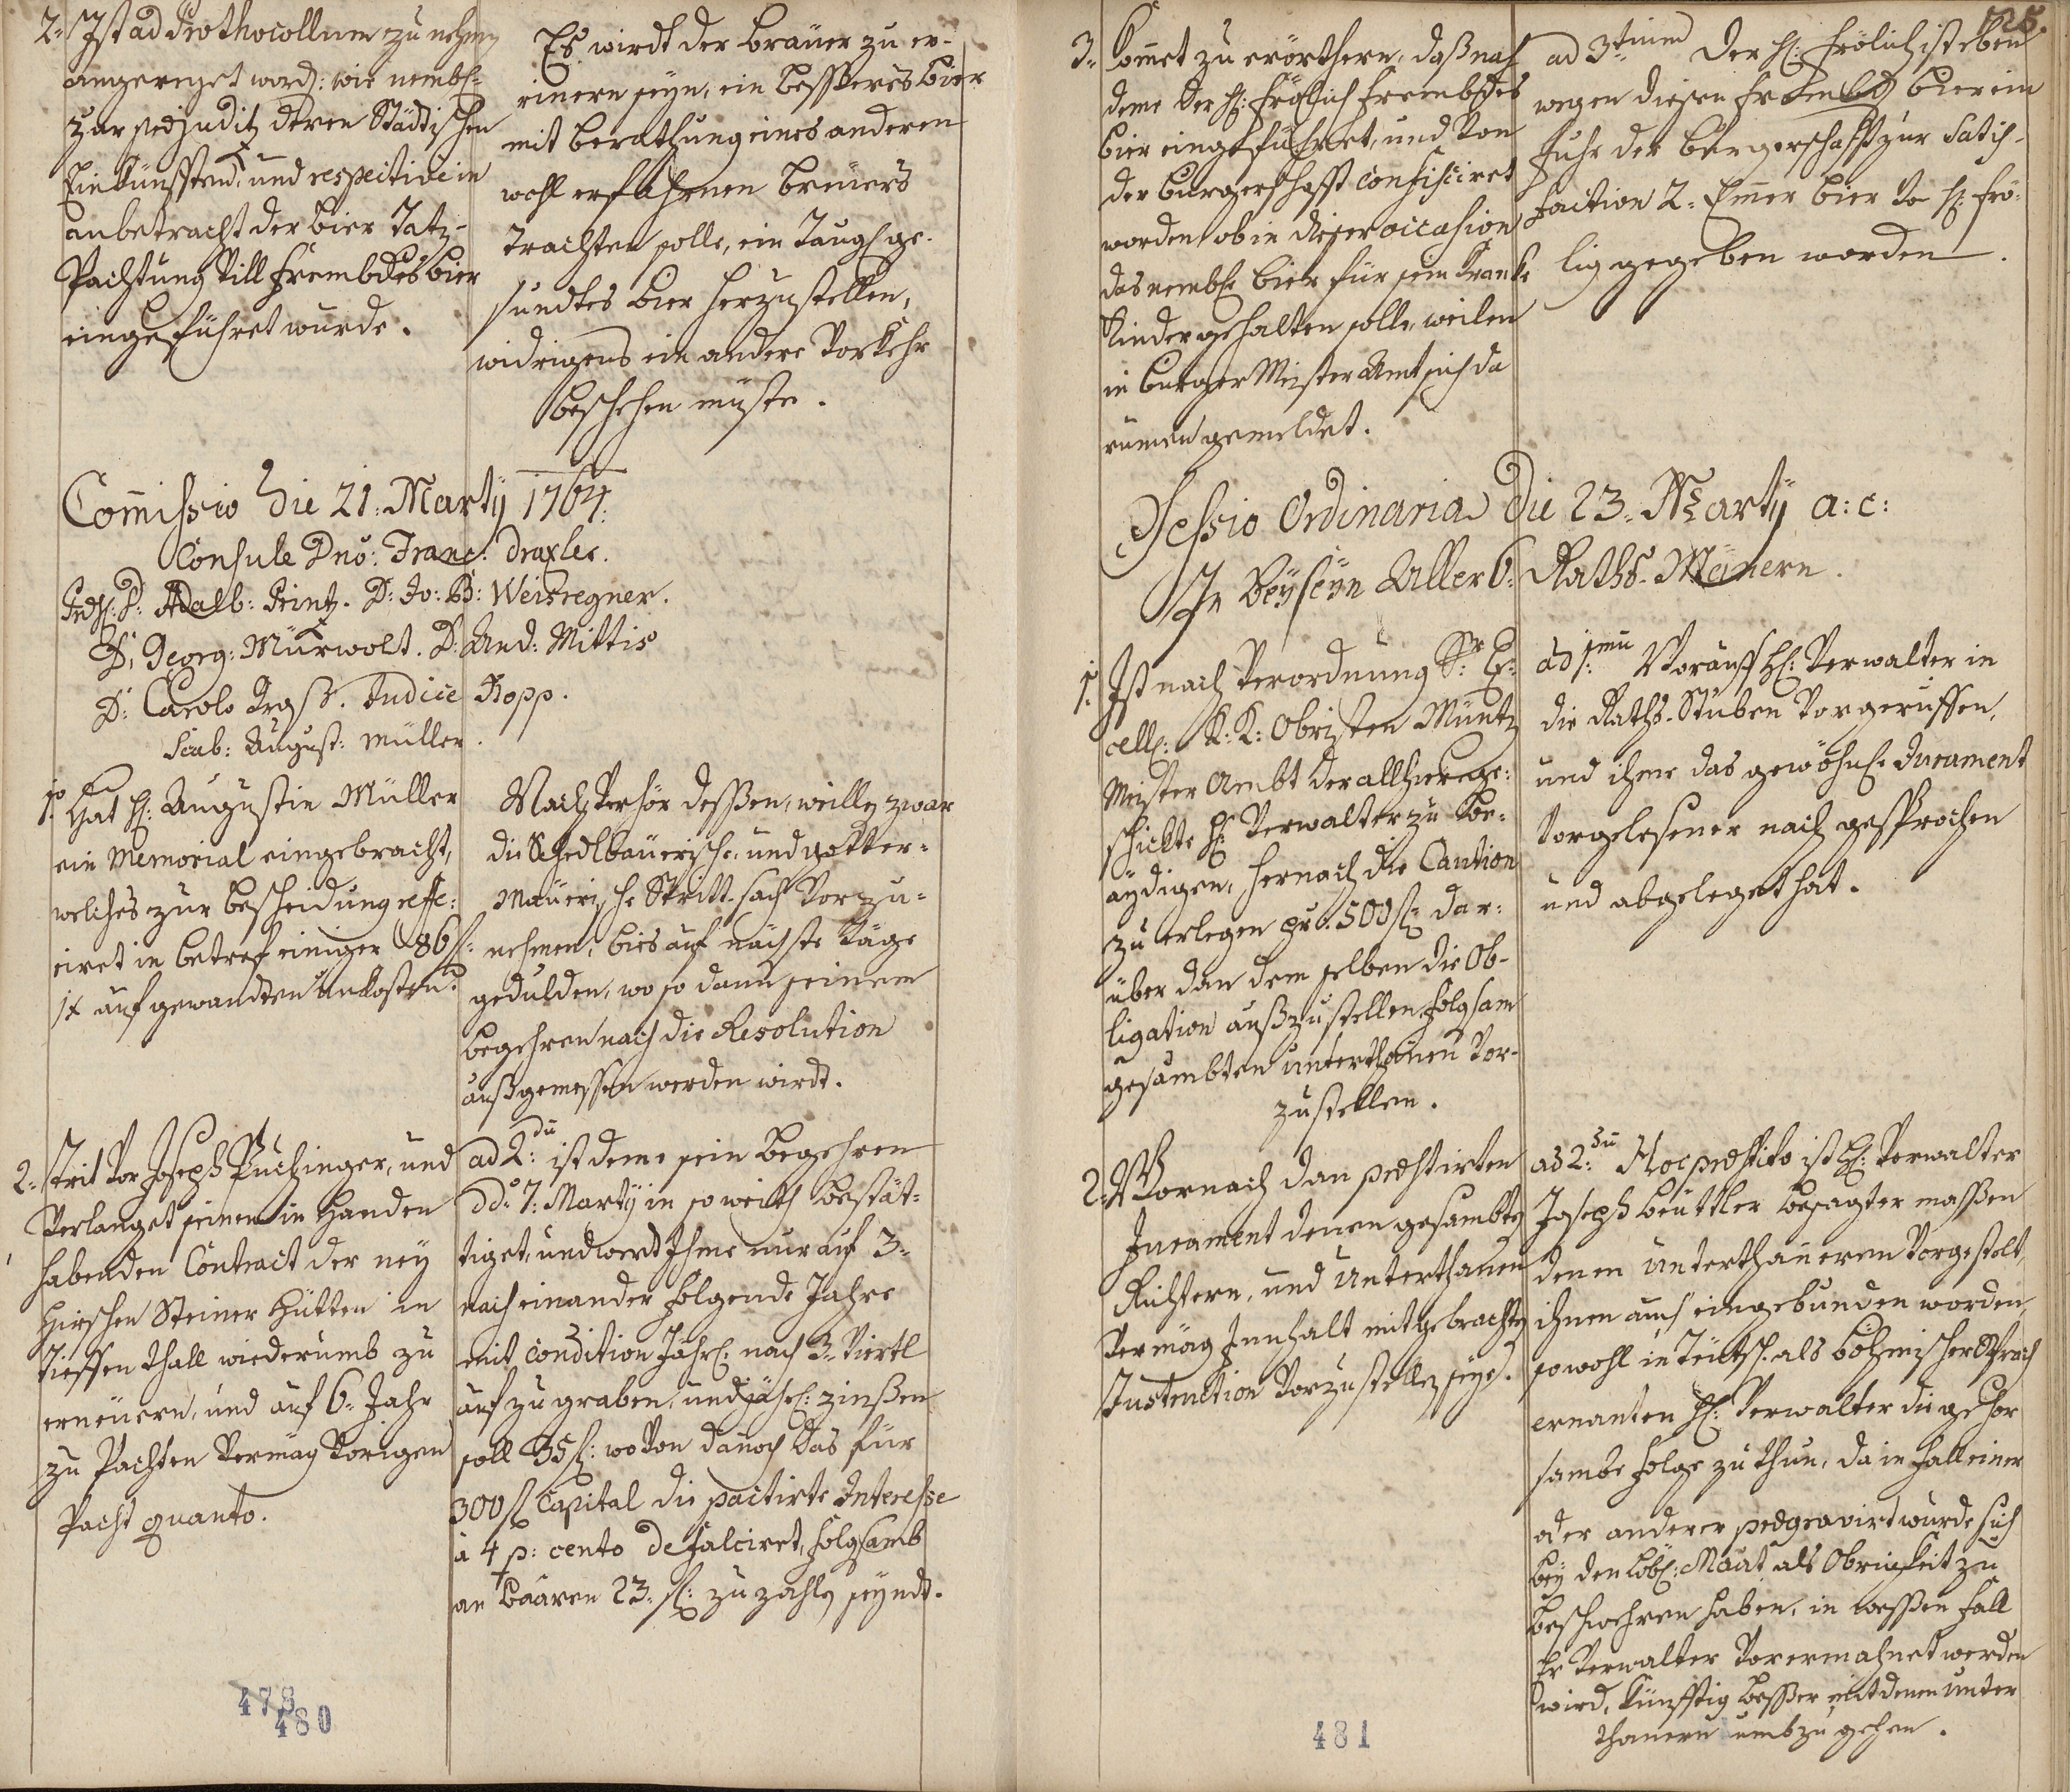 2. Ist ad Prothocollum zu nehmen
angereget word: wie nembl:
zur praejuditz deren Städtischen
Einkünfften, und respective in
anbetracht der Bier Tatz-
Pachtung vill frembdes Bier
eingeführet wurde.
Es wirdt der Breuer zu er-
rinern seyn, ein bessferes Bier
mit berathung eines anderen
wohl erfahrnen Breuers
trachten solle, ein Taugl: ge-
sundtes Bier herzustellen,
widrigens ein andere Vorkehr
beschehen müste.
Commissio die 21. Marty 1764.
Consule Dno: Franc: Draxler.
Prs: D: Adalb: Printz. D: Jo: B: Weisregner.
D: Georg: Murwolt. D: And: Mittis
D: Carolo Kross. Judice Kopp.
Scab: August: Müller.
1mo Hat H: Augustin Müller
ein Memorial eingebracht,
welches zur bescheidung reffe-
riret in betref einiger 86 f:
1x aufgewandten unkosten.
Nach verhör dessen, weillen zwar
die Schedlbaurische, und Gotter-
maurische Stritt-sach vorzu-
nehmen, bies auf nächste täge
gedulden, wo so dann seinem
begehren nach die Resolution
außgemessen werden wirdt.
2. Trit vor Joseph Puchinger, und
verlanget seinen in Handen
habenden Contract der ney
Hirschen Steiner Hütten in
tieffen thall wiederumb zu
erneuern, und auf 6. Jahr
zu Pachten vermäg vorigen
Pacht quanto.
ad 2du ist deme sein begehren
ddo 7. Marty in so weith bestät-
tiget, und werd Ihme nur auf 3.
nach einander folgende Jahre
mit condition Jährl: nach 3. Viertl
aufzugraben, und jährl: zinßen
soll 35 f: wovon danoch das für
300 f Capital die pactirte Interesse
à 4 p: cento defalciret, folgsamb
an baaren 23. f: zu zahlen seyndt.
478
480
525.
3. Komet zu erörthern, daß nach
deme der H: Frölich frembdes
Bier eingeführet, und von
der burgerschafft confisciret
worden, ob in dieser occasion
das nembl: Bier für sein Kranke
Kinder gehalten solle, weilen
in burger Meister Amt sich da
rumen gemeldet.
ad 3tium Der H: Frölich ist eben
wegen diesen frembd Bier ein
fuhr der Burgerschafft zur Satis-
faction 2. Emer Bier Vo H: Frö-
lig gegeben worden.
Sessio Ordinaria die 23. Marty a: c:
In Beyseyn Aller 6. Raths-Mänern.
1. Ist nach Verordnung Sr: Ex-
cell: K: K: Obristen Müntz
Meister Ambt der allhier ege-
schickte H: Verwalter zu be-
aydigen, hernach die Caution
zu erlegen pr. 500 f dar-
über dan dem selben die Ob-
ligation außzustellen folgsam
gesambten unterthanen vor-
zustellen.
ad 1mu Worauf H: Verwalter in
die Raths-Stuben vorgeruffen,
und ihme das gewöhnl: Jurament
vorgelesener nach gesprochen
und abgeleget hat.
2. Wornach dan praestirten
Jurament denen gesambten
Richtern, und Unterthanen
vermäg Innhalt mitgebrachten
Instruction vorzustellen seye.
ad 2du Hoc praestito ist H: Verwalter
Joseph Beuttler besagter massen
denen Unterthaneren vorgestelt,
ihnen auch eingebunden worden,
sowohl in Teütsch. als böhmischer Sprach
ernanten H: Verwalter die gehor
sambe folge zu thun, da in fall einer
oder anderer praegravirt wurde sich
bey den Löbl: Maat. als Obrigkeit zu
beschwehren haben, in wessen fall
Hr Verwalter vorermahnet werden
wird, künfftig besser mit denen Unter
thanern umbzugehen.
481